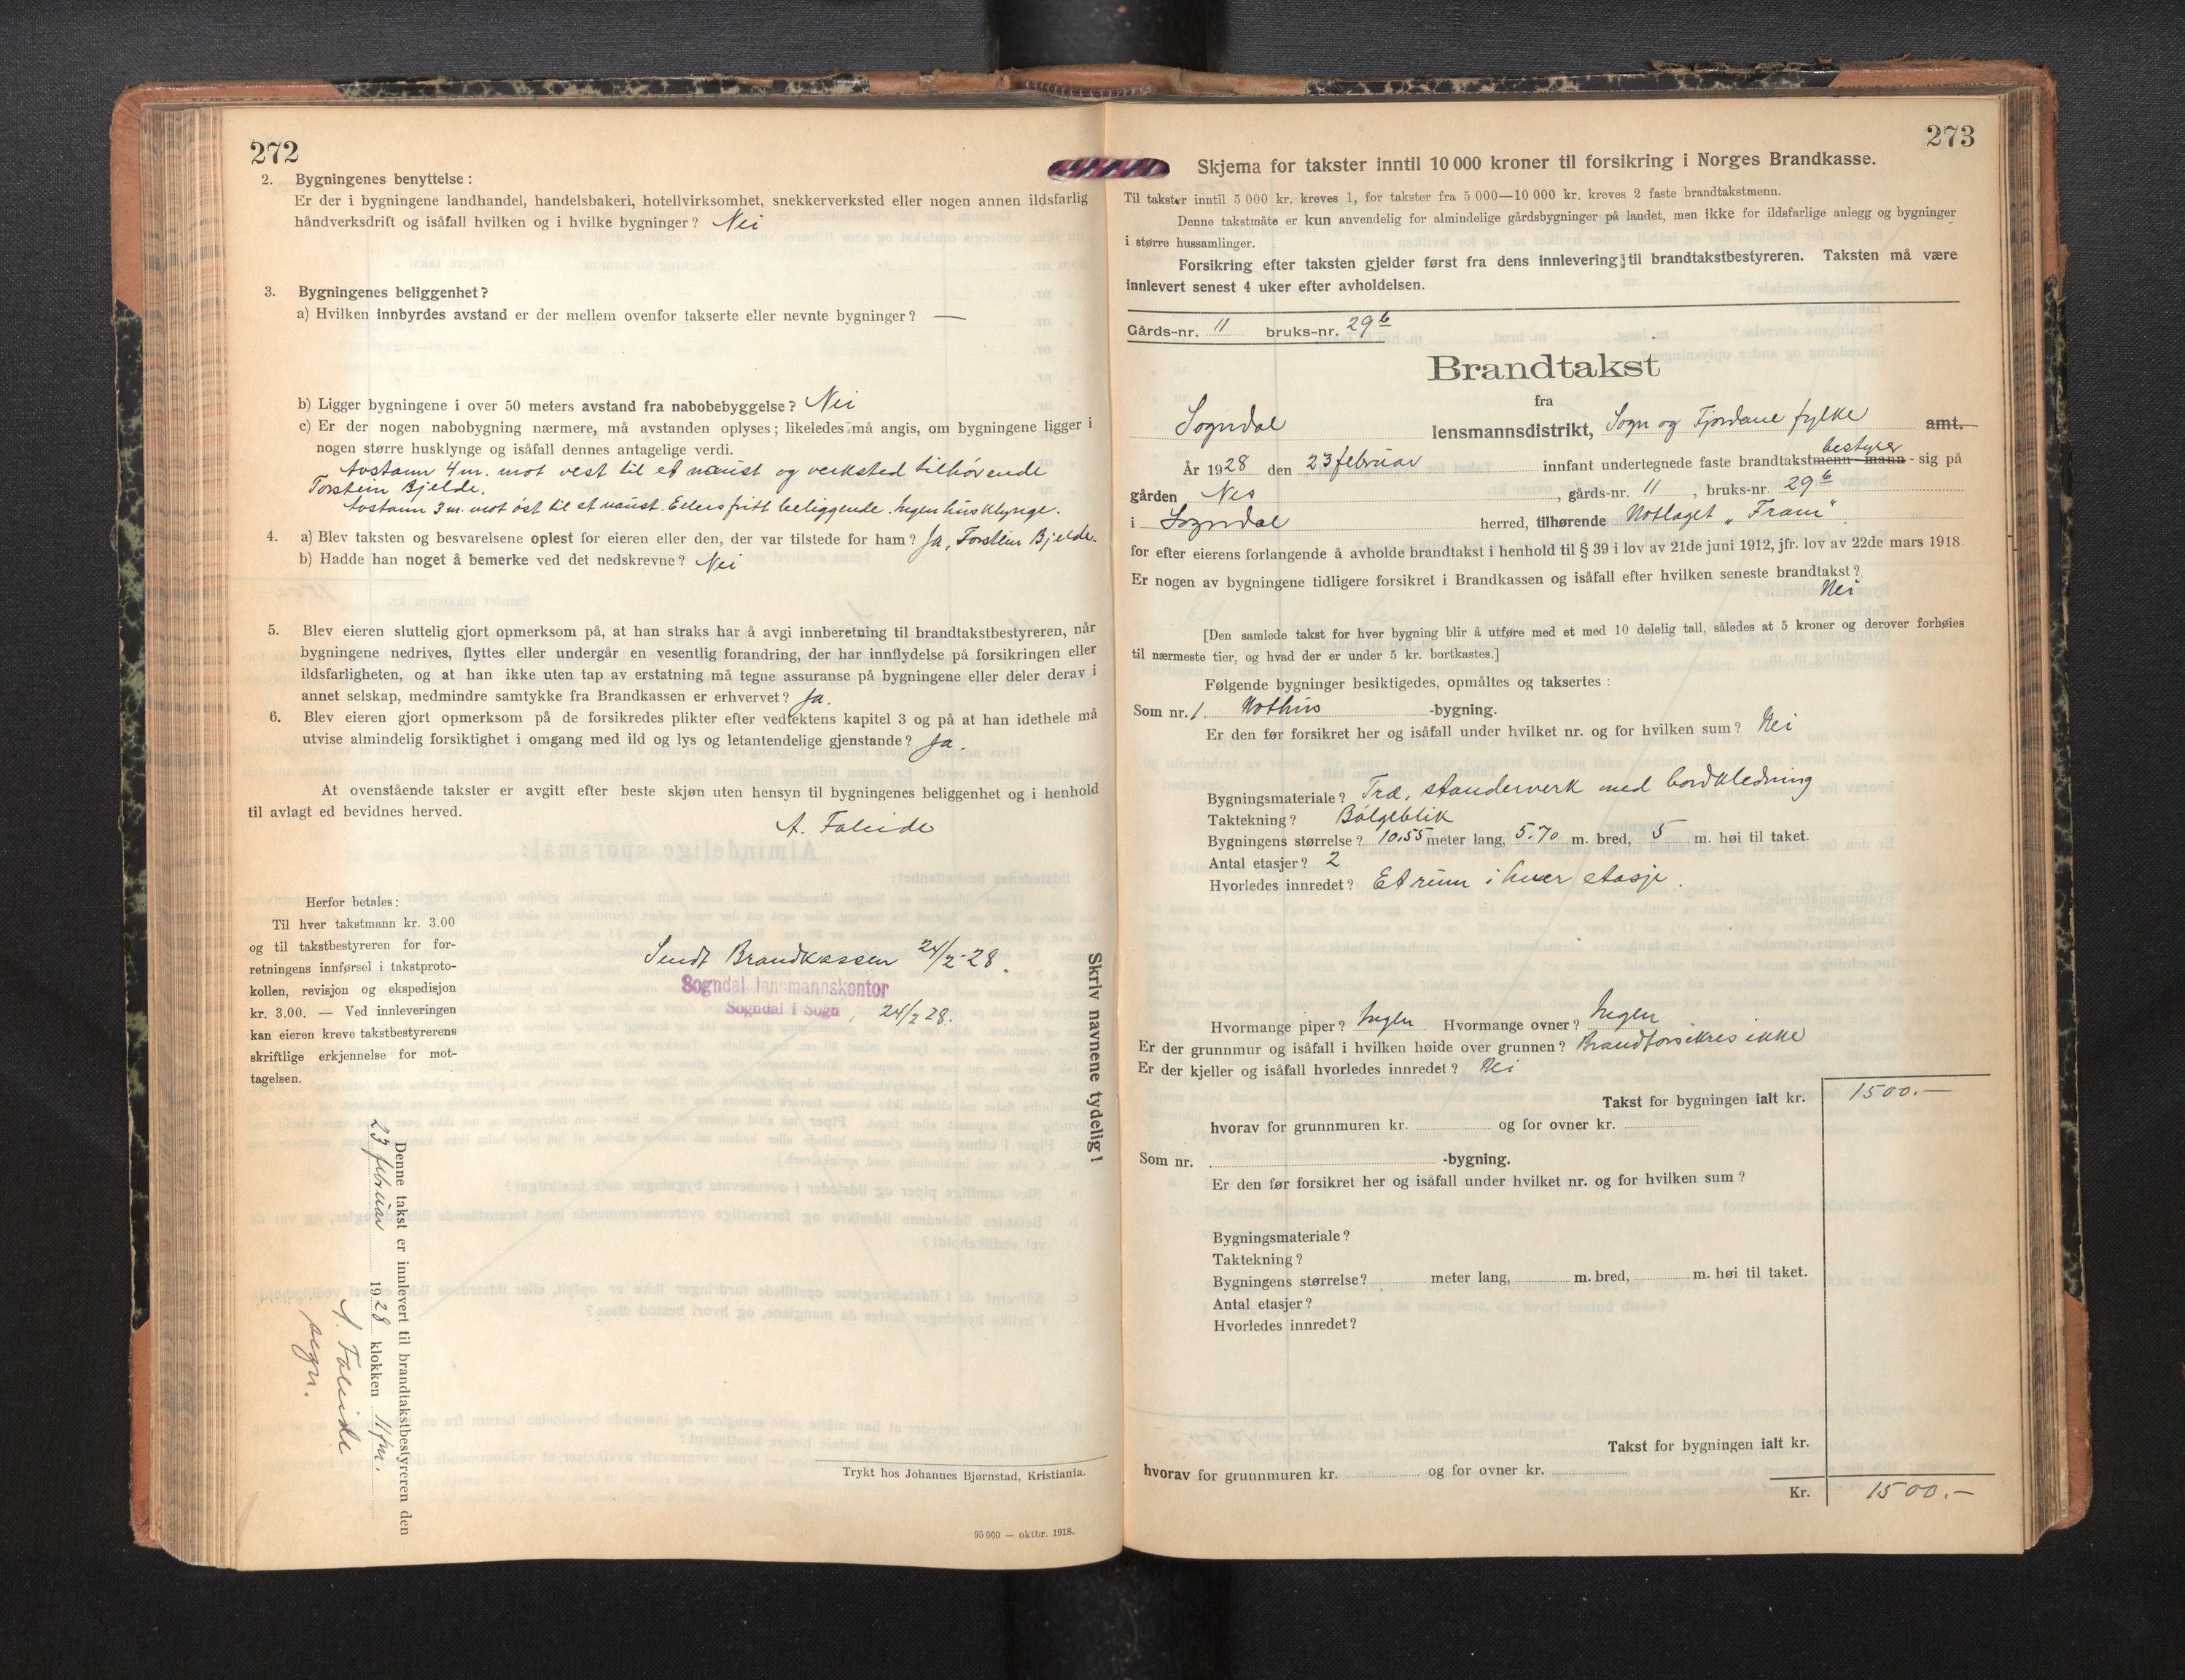 272
2. Bygningenes benyttelse:
Er der i bygningene landhandel, handelsbakeri, hotellvirksomhet, snekkerverksted eller nogen annen ildsfarlig
håndverksdrift og isåfall hvilken og i hvilke bygninger? Nei
3. Bygningenes beliggenhet?
a) Hvilken innbyrdes avstand er der mellem ovenfor takserte eller nevnte bygninger? —
b) Ligger bygningene i over 50 meters avstand fra nabobebyggelse? Nei
c) Er der nogen nabobygning nærmere, må avstanden oplyses; likeledes må angis, om bygningene ligger i
nogen større husklynge og isåfall dennes antagelige verdi.
Avstann 4 m. mot vest til et naust og verksted tilhørende
Torstein Bjelde.
Avstann 3 m. mot øst til et naust. Ellers fritt beliggende. Ingen husklynge.
4. a) Blev taksten og besvarelsene oplest for eieren eller den, der var tilstede for ham? Ja, Torstein Bjelde.
b) Hadde han noget å bemerke ved det nedskrevne? Nei
5. Blev eieren sluttelig gjort opmerksom på, at han straks har å avgi innberetning til brandtakstbestyreren, når
bygningene nedrives, flyttes eller undergår en vesentlig forandring, der har innflydelse på forsikringen eller
ildsfarligheten, og at han ikke uten tap av erstatning må tegne assuranse på bygningene eller deler derav i
annet selskap, medmindre samtykke fra Brandkassen er erhvervet? Ja.
6. Blev eieren gjort opmerksom på de forsikredes plikter efter vedtektens kapitel 3 og på at han idethele må
utvise almindelig forsiktighet i omgang med ild og lys og letantendelige gjenstande? Ja.
At ovenstående takster er avgitt efter beste skjøn uten hensyn til bygningenes beliggenhet og i henhold
til avlagt ed bevidnes herved.
A. Faleide
Herfor betales:
Til hver takstmann kr. 3.00
og til takstbestyreren for for-
retningens innførsel i takstproto-
kollen, revisjon og ekspedisjon
kr. 3.00. — Ved innleveringen
kan eieren kreve takstbestyrerens
skriftlige erkjennelse for mot-
tagelsen.
Sendt Brandkassen 24/2-28.
Sogndal lensmannskontor
Sogndal i Sogn, 24/2 28.
Skriv navnene tydelig!
Denne takst er innlevert til brandtakstbestyreren den
23 februar 1928 klokken 11 fm.
A. Faleide
sogn.
Trykt hos Johannes Bjørnstad, Kristiania.
95 000 — oktbr. 1918.
273
Skjema for takster inntil 10 000 kroner til forsikring i Norges Brandkasse.
Til takster inntil 5 000 kr. kreves 1, for takster fra 5 000—10 000 kr. kreves 2 faste brandtakstmenn.
Denne takstmåte er kun anvendelig for almindelige gårdsbygninger på landet, men ikke for ildsfarlige anlegg og bygninger
i større hussamlinger.
Forsikring efter taksten gjelder først fra dens innlevering til brandtakstbestyreren. Taksten må være
innlevert senest 4 uker efter avholdelsen.
Gårds-nr. 11 bruks-nr. 29 b
Brandtakst
fra
Sogndal lensmannsdistrikt, Sogn og Fjordane fylke amt.
bestyrer
År 1928 den 23 februar innfant undertegnede faste brandtakstmenn - mann - sig på
gården Nes, gårds-nr. 11, bruks-nr. 29 b
i Sogndal herred, tilhørende Notlaget „Fram".
for efter eierens forlangende å avholde brandtakst i henhold til § 39 i lov av 21de juni 1912, jfr. lov av 22de mars 1918.
Er nogen av bygningene tidligere forsikret i Brandkassen og isåfall efter hvilken seneste brandtakst?
Nei
[Den samlede takst for hver bygning blir å utføre med et med 10 delelig tall, således at 5 kroner og derover forhøies
til nærmeste tier, og hvad der er under 5 kr. bortkastes.]
Følgende bygninger besiktigedes, opmåltes og taksertes:
Som nr. 1. Nothus -bygning.
Er den før forsikret her og isåfall under hvilket nr. og for hvilken sum? Nei
Bygningsmateriale? Træ, standerverk med bordkledning
Taktekning? Bølgeblik
Bygningens størrelse? 10.55 meter lang, 5.70 m. bred, 5 m. høi til taket.
Antal etasjer? 2
Hvorledes innredet? Et rum i hver etasje.
Hvormange piper? Ingen Hvormange ovner? Ingen
Er der grunnmur og isåfall i hvilken høide over grunnen? Brandforsikres ikke
Er der kjeller og isåfall hvorledes innredet? Nei
Takst for bygningen ialt kr. 1500.—
hvorav for grunnmuren kr. og for ovner kr.
Som nr. -bygning.
Er den før forsikret her og isåfall under hvilket nr. og for hvilken sum?
Bygningsmateriale?
Taktekning?
Bygningens størrelse? meter lang, m. bred, m. høi til taket.
Antal etasjer?
Hvorledes innredet?
Takst for bygningen ialt kr.
hvorav for grunnmuren kr. og for ovner kr.
Kr. 1500.—